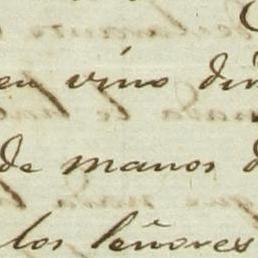 en vino
de manos
los señores